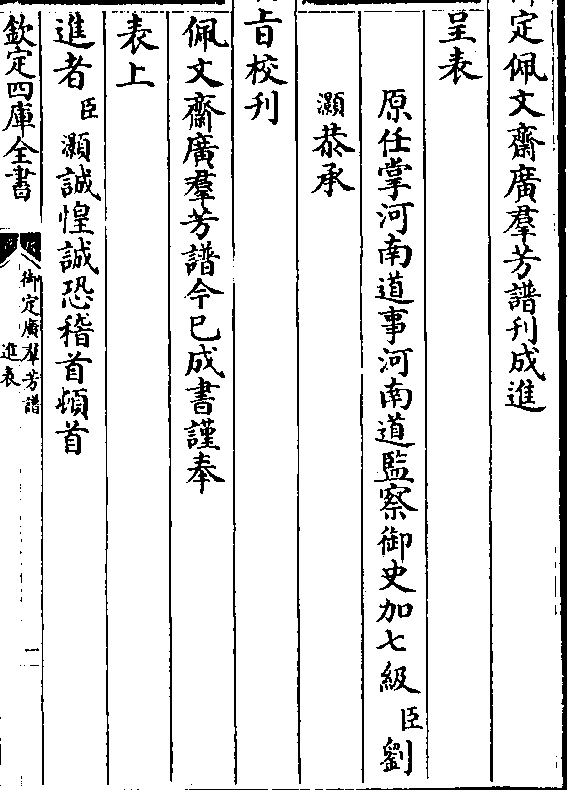 定佩文齋廣羣芳譜刊成進
呈表
原任掌河南道事河南道監察御史加七級臣劉
灝恭承
㫖校刊
佩文齋廣羣芳譜今已成書謹奉
表上
進者臣灝誠惶誠恐稽首頓首
欽定四庫全書
御定廣羣芳譜
進表
一